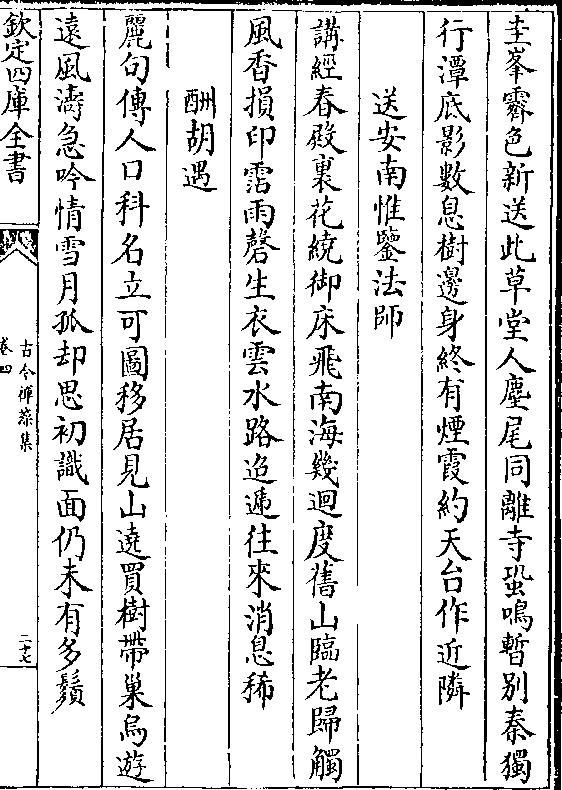 圭峯霽色新送此草堂人麈尾同離寺蛩鳴暫别秦獨
行潭底影數息樹邊身終有煙霞約天台作近隣
送安南惟鑒法師
講經春殿裏花繞御床飛南海幾迴度舊山臨老歸觸
風香損印霑雨磬生衣雲水路迢遞往來消息稀
酬胡遇
麗句傳人口科名立可圖移居見山遶買樹帶巢烏遊
遠風濤急吟情雪月孤却思初識面仍未有多鬚
欽定四庫全書
古今禪藻集
卷四
二十七